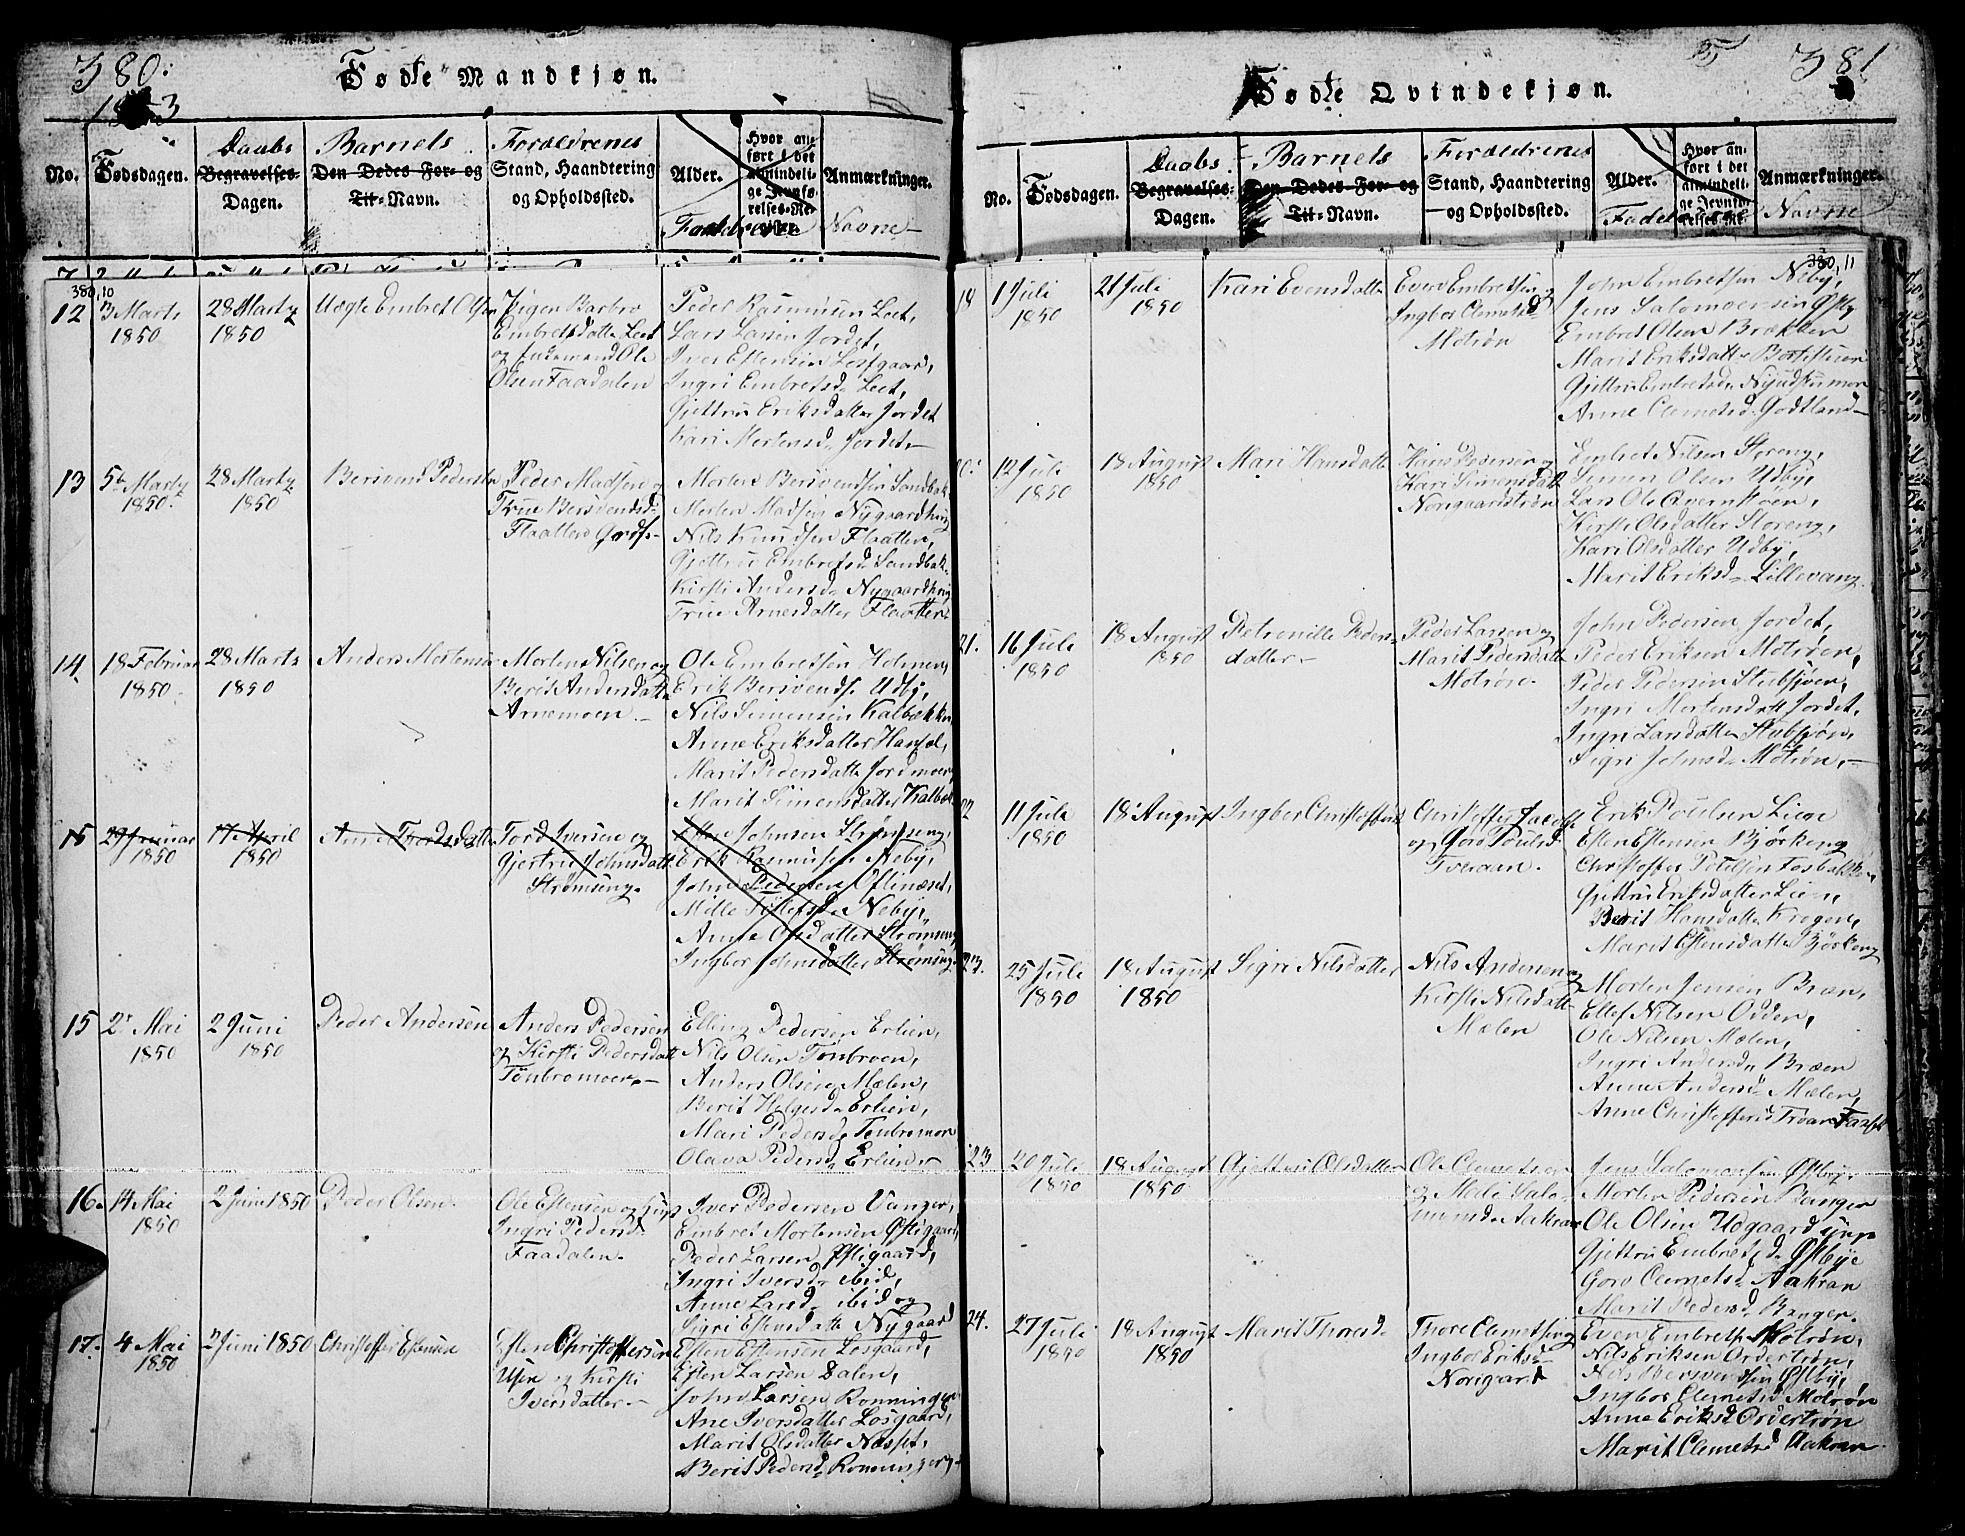 380.
1853
Fødte Mandkjøn.
No.
Fødsdagen.
Daabs
Begravelses-
Dagen.
Barnets
Den Dødes For- og
Til-Navn.
Forældrenes
Stand, Haandtering
og Opholdssted.
Alder.
Hvor an-
ført i det
almindeli-
ge Jevnfø-
relses-Re-
Anmærkninger.
Faddrenes Navne
380,10
12
3 Marts
1850
28 Marts
1850
Uægte Embret Olsen
Pigen Barbro
Embretsdatter Leet
og Ole
Olsen Faadalen
Peder Rasmusen Leet,
Lars Larsen Jordet,
Iver Estensen Losgaard,
Ingri Embretsd Leet,
Gjettru Eriksdatter Jordet
Kari Mortensd Jordet
13
5te Marts
1850.
28 Marts
1850
Bersvend Pedersen
Peder Madsen og
True Bersvendsd
Flaatten
Morten Bersvendsen Sandbak
Morten Madsen Nygaard
Nils Knudsen Flaatten,
Gjettru Embretsd Sandbak
Kirsti Andersd Nygaard
True Arnesdatter Flaatten
14
18 Februar
1850
28 Marts
1850
Anders Mortensen
Morten Nilsen og
Berit Andersdatt
Arnemoen
Ole Embretsen Holmen,
Erik Bersvends Udby,
Nils Simensen Kalbækken
Anne Eriksdatter
Marit Pedersdatt Jordmoen,
Marit Simensdatter Kalbæk
15
1850
17 April
1850
Anne Tordsdatter
Tord Iversen og
Gjertru Johnsdatt
Strømseng
Johnsen Strømseng,
Erik Rasmusen Neby,
John Pedersen
Mille Neby,
Anne Olsdatter Strømseng
Ingbor Johnsdatter Strømseng
15
2 Mai
1850
2 Juni
1850
Peder Andersen
Anders Pedersen
og Kirsti Pedersdatt
Tønbromoen
Elling Pedersen Erlien,
Nils Olsen Tønbroen,
Anders Olsen Mælen,
Berit Helgesd Erlien,
Mari Pedersd Tønbromoen
Olava Pedersd Erlien
16.
14 Mai
1850
2 Juni 1850
Peder Olsen
Ole Estensen og
Ingri Pedersd
Faadalen
Iver Pedersen Vanger,
Embret Mortensen Østigaard,
Peder Larsen Østigaard,
Ingri Iversd ibid,
Anne Larsd ibid og
Sigri Estensdatt Nygaard
17.
4 Mai
1850
2 Juni 1850
Christoffer Estensen
Esten Christoffersen
og Kirsti
Iversdatter
Esten Estensen Losgaard,
Esten Larsen Dalen,
John Larsen Ronningen
Ane Iversdatter Losgaard,
Marit Olsdatter Næsset,
Berit Pedersd Ronningen
381
Fødte Qvindekjøn.
No.
Fødsdagen.
Daabs
Begravelses-
Dagen.
Barnets
Den Dødes For- og
Til-Navn.
Forældrenes
Stand, Haandtering
og Opholdssted.
Alder.
Hvor an-
ført i det
almindeli-
ge Jevnfø-
relses-Re
Anmærkninger.
Navne
380,11
18
1 Juli
1850
21 Juli
1850
Kari Evensdatte
Even Embretsen
Ingbor Clemetsd
Motrøn
John Embretsen Neby,
Jens Salomonsen Østby
Embret Olsen Brækken
Marit Eriksdatter
Gjettru Embretsd
Anne Clemetsd Godtland
12 Juli
1850
18 August
1850
Mari Hansdatter
Hans Pedersen og
Kari Simensdatt
Norigaardstrøn
Embret Nilsen Storeng,
Simen Olsen Udby,
Lars Ole Qvernstoen,
Kirsti Olsdatter Storeng,
Kari Olsdatter Udby,
Marit Eriksd Lillevang
21.
16 Juli
1850
18 August
1850
Petronille Peders-
datter
Peder Larsen og
Marit Pedersdatte
Motrøn
John Pedersen Jordet,
Peder Eriksen Motrøn,
Peder Pedersen Stubsjøen,
Ingri Mortensdatt Jordet,
Ingri Larsdatter Stubsjøen,
Sigri Johnsd Motrøn
22
11 Juli
1850
18 August
Ingbor Christoffersd
Christoffer
og Goro Poulsd
Tveraaen
Erik Poulsen Lien
Esten Estensen Bjørkeng
Christoffer Fosbakken,
Gjettru Eriksdatter Lien,
Berit Hansdatte Krogen,
Marit Estensdatt Bjørkeng
23.
25 Juli
1850
18 August
1850
Sigri Nilsdatter
Nils Andersen og
Kirsti Nilsdatt
Mælen
Morten Jensen Bræn,
Ellef Nilsen Odden,
Ole Nilsen Mælen,
Ingri Andersd Bræen
Anne Andersd Mælen,
Anne Christoffersd
23
20 Juli
1850
18 August
1850
Gjettru Olsdatter
Ole Clemetsen
og Mali Salo-
monsd Aakran
Jens Salomonsen Østby
Morten Pedersen Banger
Ole Olsen Udgaard
Gjettru Embretsd Østbye
Goro Clemetsd Aakran
Marit Pedersd Banger
24.
27 Juli
1850
18 August
1850
Marit Thoresd
Thore Clemetsen
Ingbor Eriksd
Norigard
Even Embretsen Motrøn,
Nils Eriksen Ordertrøn,
Nils Bersvendsen Østby,
Ingbor Clemetsd Motrøn
Anne Eriksd Ordertrøn
Marit Clemetsd Aakran